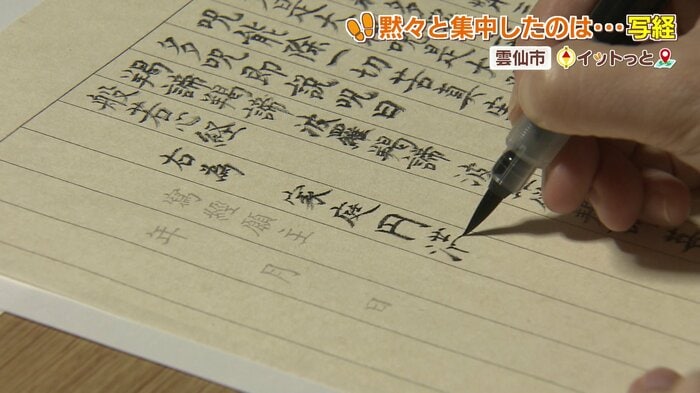 黙々と集中したのは…写経
雲仙市
イットっと
呪能除一切苦真
多呪即説呪曰
羯諦羯諦 波羅羯諦 波
般若心経
右為 家庭円
寫經願主
年 月 日